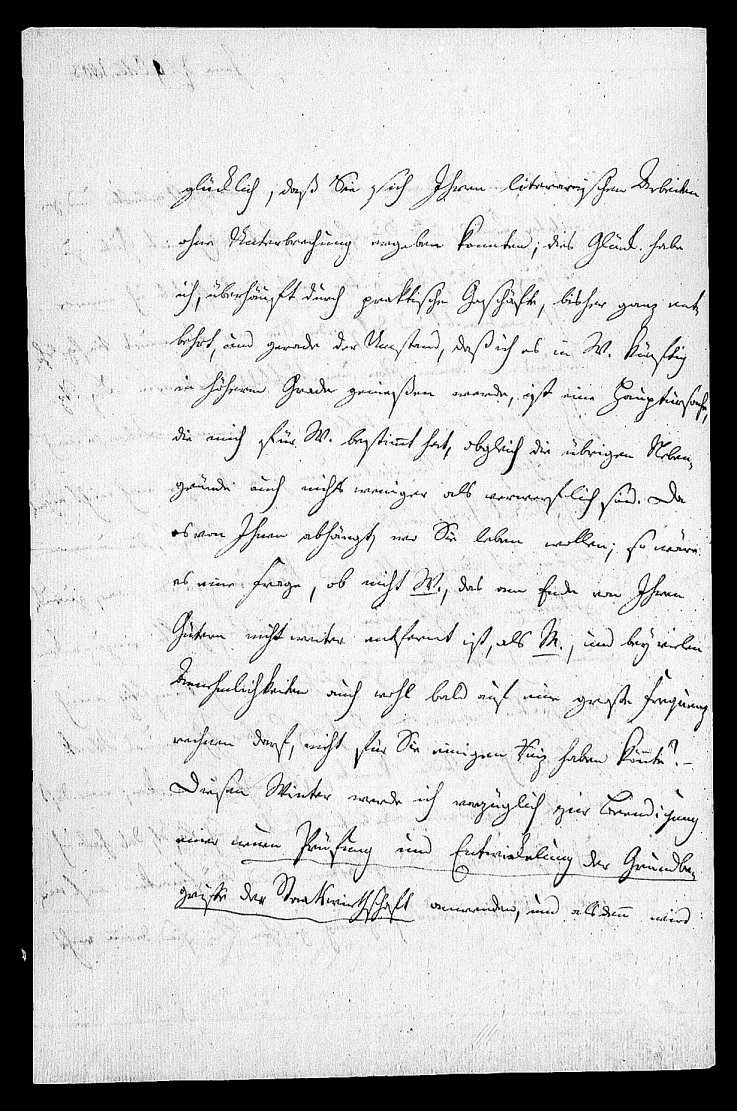 glücklich, daß Sie sich Ihren literarischen Arbeiten
ohne Unterbrechung ergeben konnten; dies Glück habe
ich, überhäuft durch praktische Geschäfte, bisher ganz ent
behrt, und gerade der Umstand, daß ich es in W. künftig
in höherm Grade genießen werde, ist eine Hauptursache,
die mich für W. bestimmt hat, obgleich die übrigen Neben-
gründe auch nichts weniger als verwerflich sind. Da
es von Ihnen abhängt, wo Sie leben wollen; so wäre
es eine Frage, ob nicht W., das am Ende von Ihren
Gütern nicht weiter entfernt ist, als M., und bey vielen
Annehmlichkeiten auch wohl bald auf eine große Frequenz
rechnen darf, nicht für Sie einigen Reiz haben könnte? –
Diesen Winter werde ich vorzüglich zur Beendigung
einer neuen Prüfung und Entwickelung der Grundbe-
griffe der Staatswirthschaft anwenden, und alsdenn wird